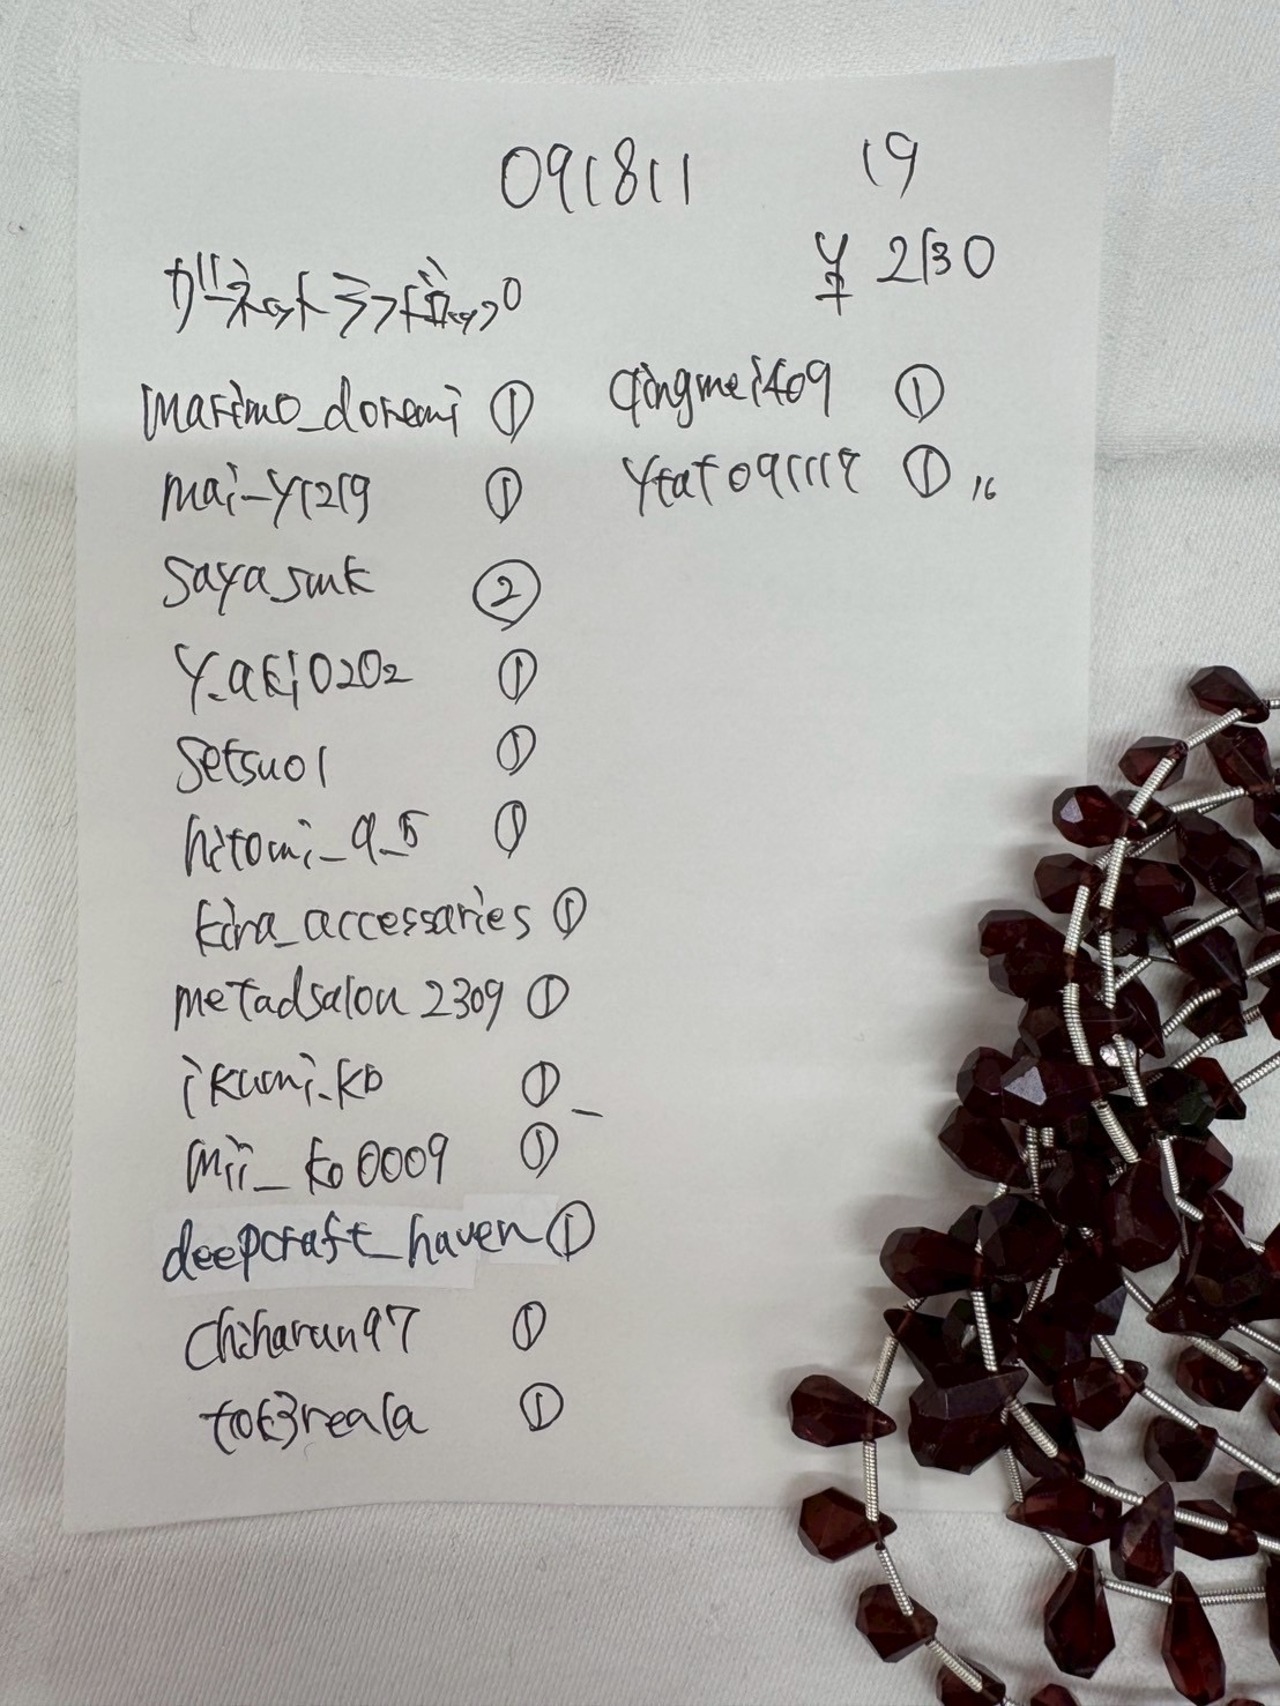 091811 19
¥2130
ガーネットラフドロップ
marimo_doremi ①
mai-y1219 ①
sayasmk ②
y_aki0202 ①
setsu01 ①
hitomi_9_5 ①
kina_accessaries ①
metadsalon2309 ①
ikumi.ko ①
mii_ko0009 ①
deepcraft_haven ①
chiharun97 ①
①
qingmei409 ①
① 16